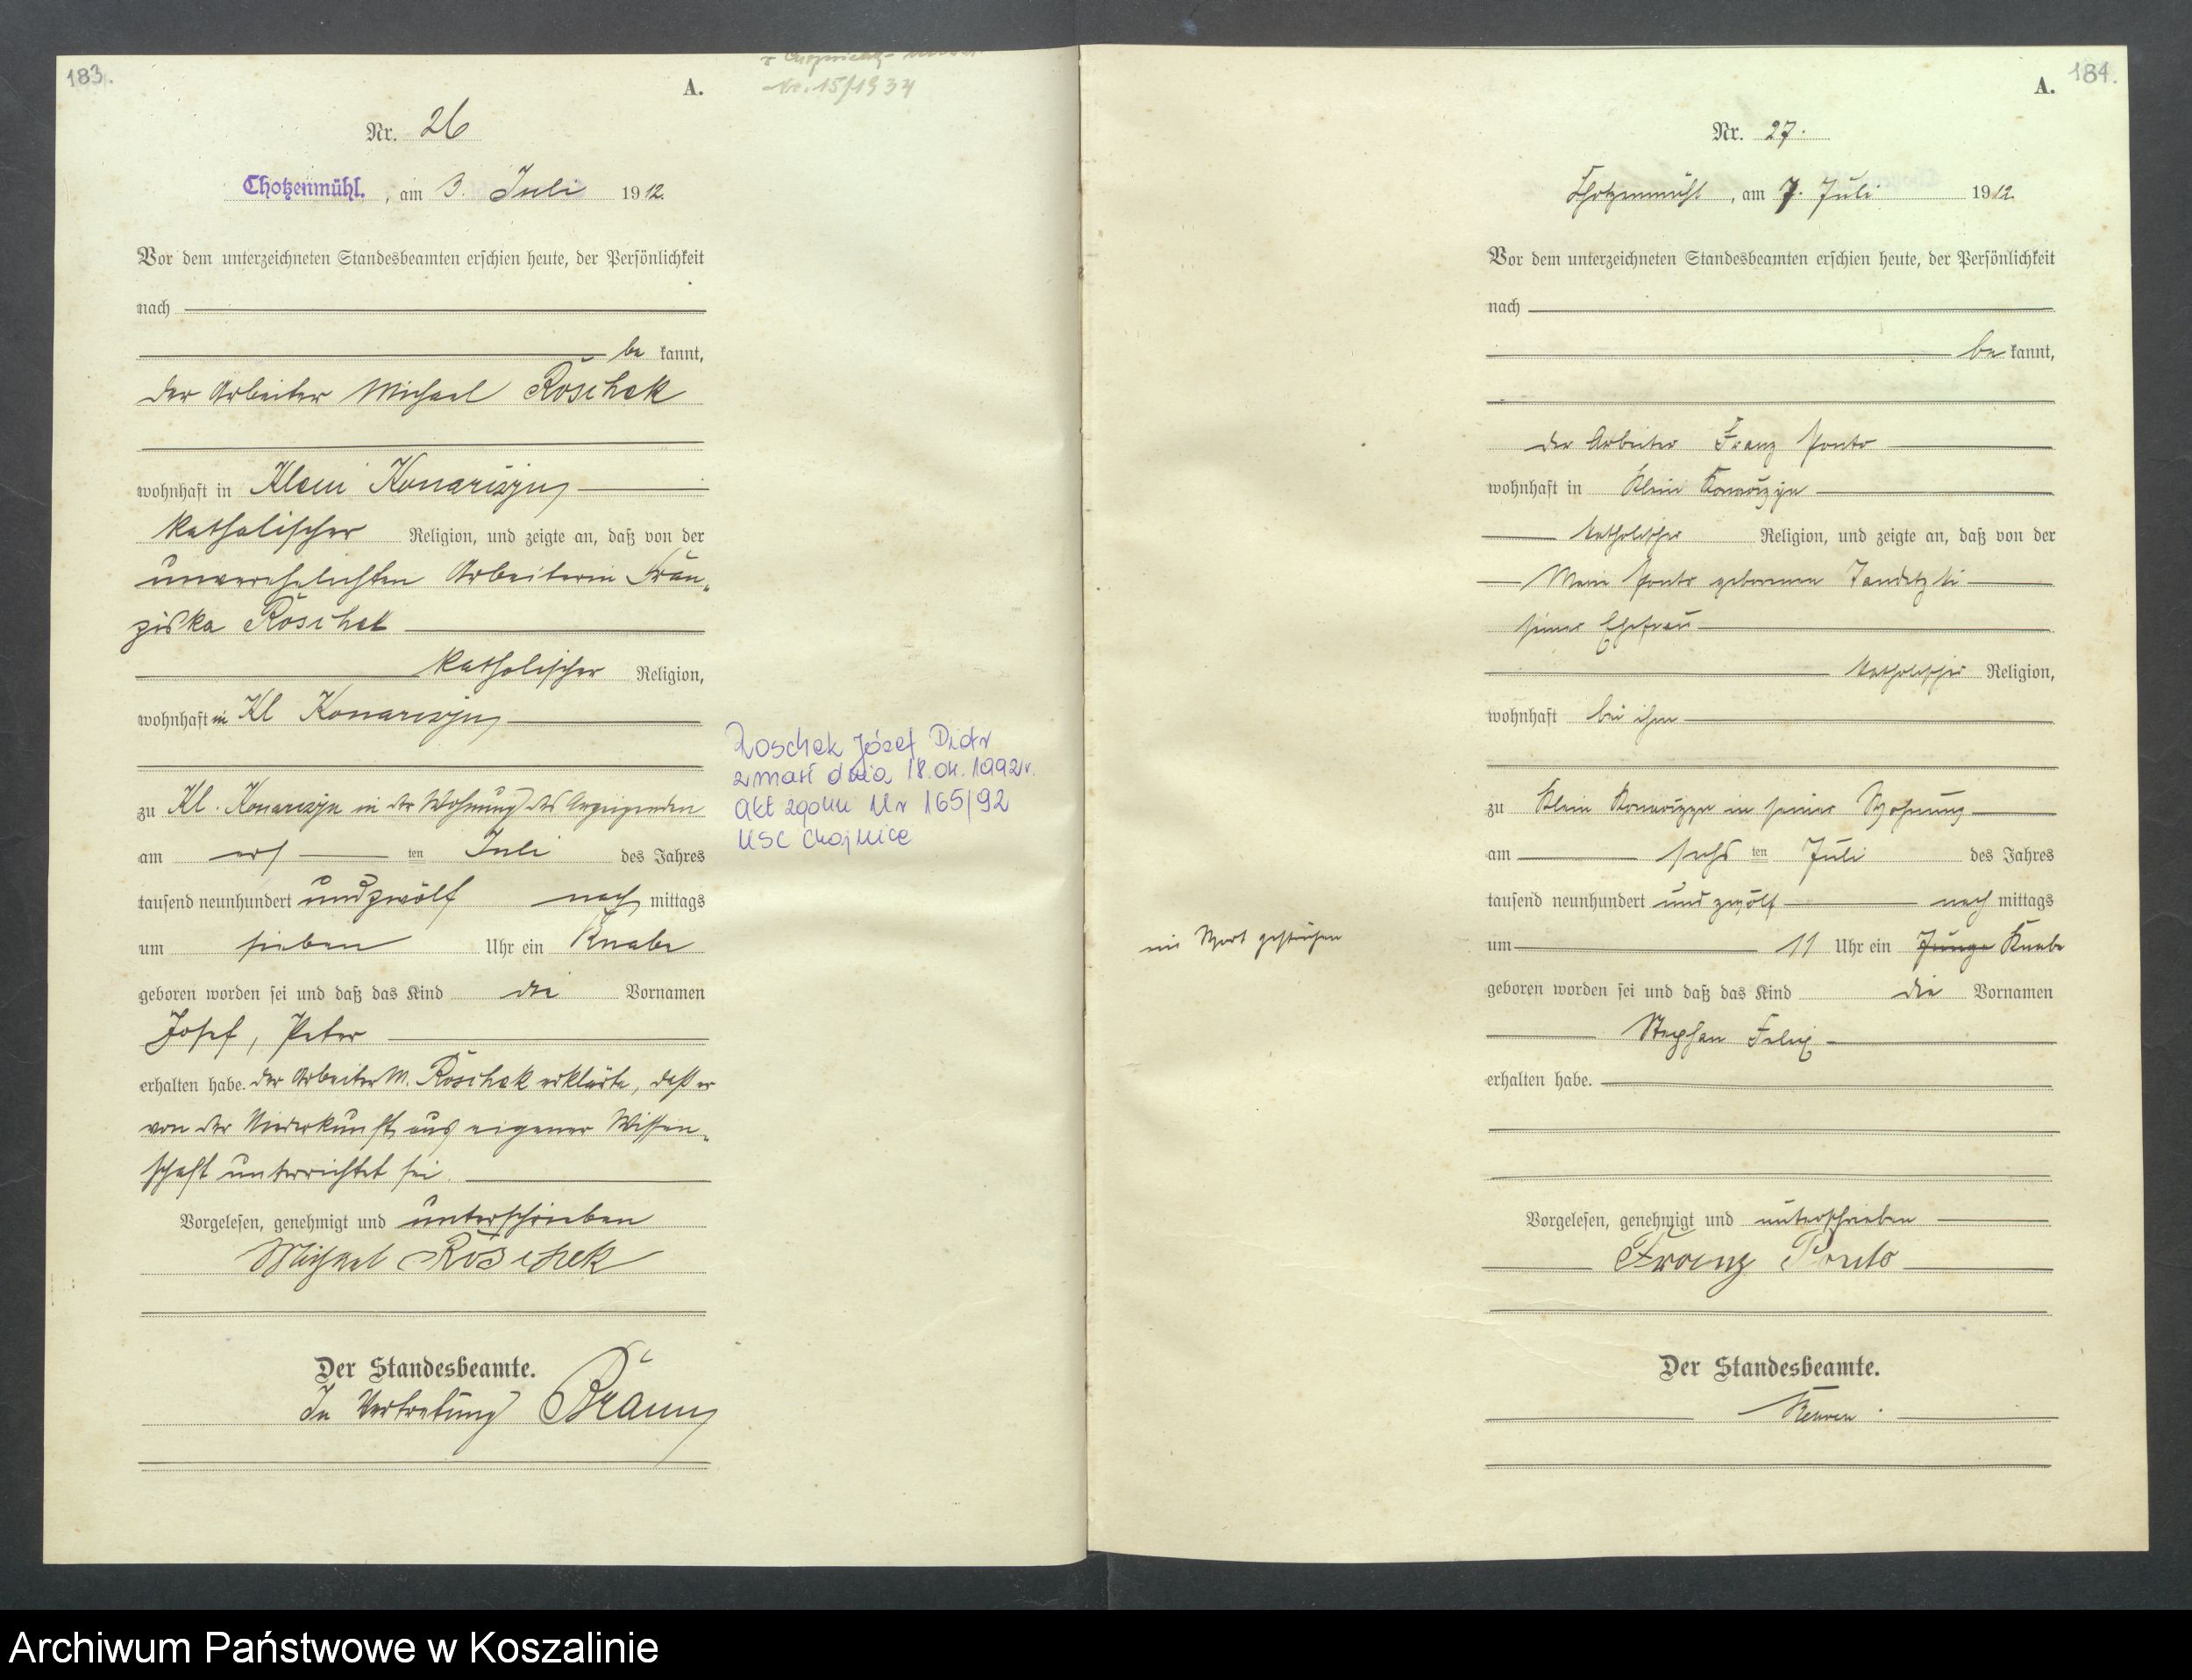 183.
A.
Nr. 15/1934
Nr. 26
Chotzenmühl. , am 3. Juli 1912.
Vor dem unterzeichneten Standesbeamten erschien heute, der Persönlichkeit
nach
be kannt,
der Arbeiter Michael Roschek
wohnhaft in Klein Konarczyn
katholischer Religion, und zeigte an, daß von der
unverehelichten Arbeiterin Fran-
ziska Roschek
katholischer Religion,
wohnhaft in Kl Konarczyn
zu Kl. Konarczyn in der Wohnung des Anzeigenden
am ers ten Juli des Jahres
tausend neunhundert und zwölf nach mittags
um sieben Uhr ein Knabe
geboren worden sei und daß das Kind die Vornamen
Josef, Peter
erhalten habe. Der Arbeiter M. Roschek erklärte, daß er
von der Niederkunft aus eigener Wissen-
schaft unterrichtet sei.
Vorgelesen, genehmigt und unterschrieben
Michael Roschek
Der Standesbeamte.
In Vertretung Braun
Roschek Józef Piotr
zmarł dnia 18.04.1992r.
akt zgonu Nr 165/92
USC Chojnice
184.
A.
Nr. 27.
Chotzenmühl , am 7. Juli 1912.
Vor dem unterzeichneten Standesbeamten erschien heute, der Persönlichkeit
nach
be kannt,
der Arbeiter Franz Ponto
wohnhaft in Klein Konarczyn
katholischer Religion, und zeigte an, daß von der
Ponto geborenen
seiner Ehefrau
katholischer Religion,
wohnhaft bei ihm
zu Klein Konarczyn in seiner Wohnung
am sechs ten Juli des Jahres
tausend neunhundert und zwölf nach mittags
um 11 Uhr ein Junge Knabe
ein Wort gestrichen
geboren worden sei und daß das Kind die Vornamen
Stephan Felix
erhalten habe.
Vorgelesen, genehmigt und unterschrieben
Franz Ponto
Der Standesbeamte.
Archiwum Państwowe w Koszalinie